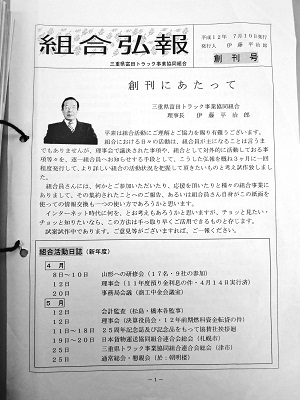 平成12年 7月10日発行
発行人 伊藤平治郎
組合弘報
創刊号
三重県富田トラック事業協同組合
創刊にあたって
三重県富田トラック事業協同組合
理事長 伊藤平治郎
平素は組合活動にご理解とご協力を賜り有難うございます。
組合における日々の活動は、組合員が主になることは言うま
でもありませんが、理事会で議決された事項や、組合として対外的に活動しておる事
項等々を、逐一組合員へお知らせする手段として、こうした弘報を概ね3ヶ月に一回
程度発行して、より詳しい組合の活動状況を把握して頂きたいものと考え試作致しまし
た。
組合員さんには、何かとご参加いただいたり、応援を頂いたりと種々の組合事業に
ありまして、その集約されたことへのご報告、あるいは組合員さん自身がこの紙面を
使っての情報交換も一つの使い方であろうかと思います。
インターネット時代に何を、とお考えもあろうかと思いますが、チョッと見たい・
チョッと知りたいなら、この方法は手っ取り早くご活用できるものと存じます。
試案試作中でありますが、ご意見等がございますれば、ご一報ください。
組合活動日誌(新年度)
4月
8日~10日 山形への研修会(17名・9社の参加)
12日 理事会(11年度預り金利息の件・4月14日実行済)
20日 事務局会議(商工中金会議室)
5月
12日 会計監査(松島・橋本各監事)
12日 理事会(決算役員会・12年前期燃料資金転貸の件)
11日~18日 25周年記念誌及び記念品をもって協賛社挨拶廻
19日~20日 日本貨物運送協同組合連合会総会(札幌市)
25日 三重県トラック事業協同組合連合会総会(津市)
25日 通常総会・懇親会(於:朝明楼)
-1-